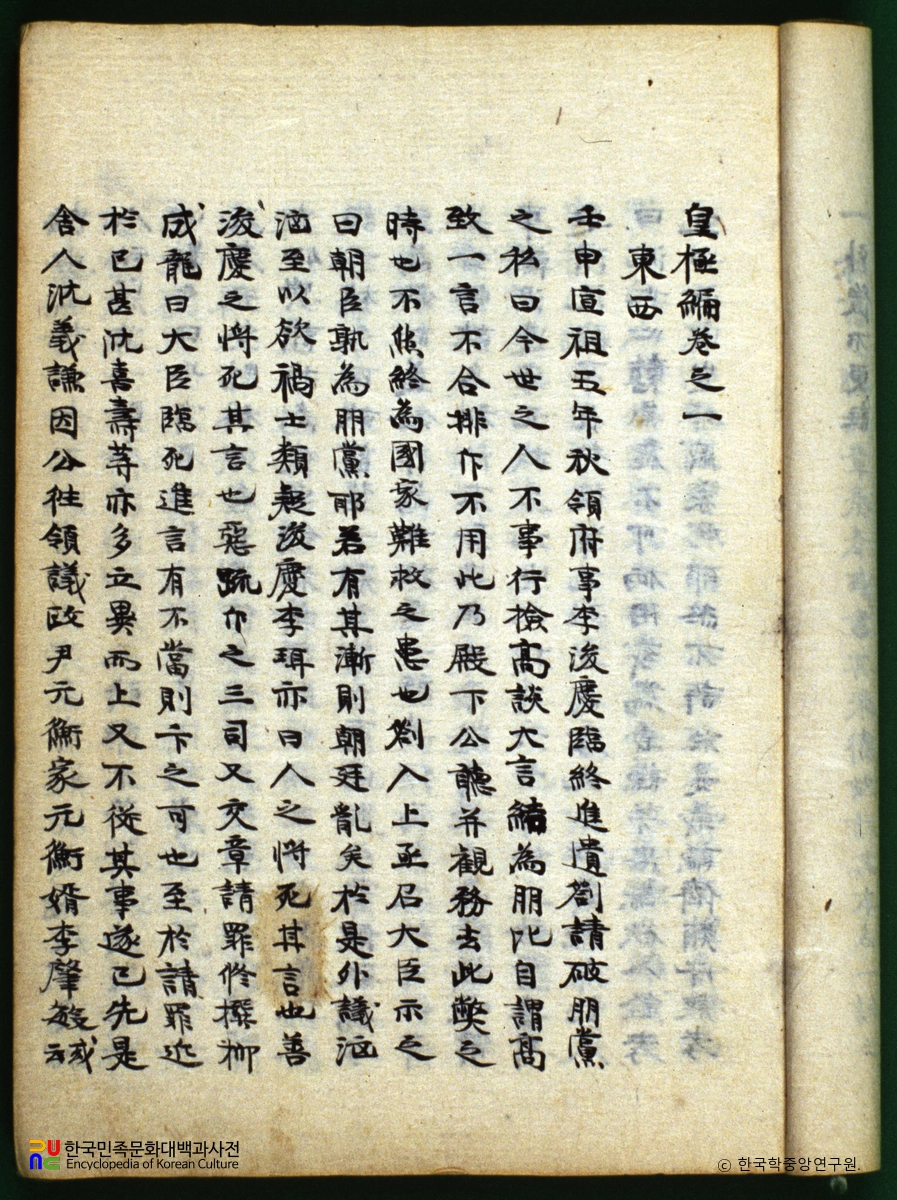 皇極編卷之一
東西
壬申宣祖五年秋領府事李浚慶臨終進遺劄請破朋黨
之私曰今世之人不事行檢高談大言結為朋比自謂高
致一言不合排斥不用此乃殿下公聽并觀務去此弊之
時也不然終為國家難救之患也劄入上亟召大臣示之
曰朝臣孰為朋黨耶若有其漸則朝廷亂矣於是外議洶
洶至以欲禍士類疑浚慶李珥亦曰人之將死其言也善
浚慶之將死其言也惡疏斥之三司又交章請罪修撰柳
成龍曰大臣臨死進言有不當則卞之可也至於請罪近
於已甚沈喜壽等亦多立異而上又不從其事遂已先是
舍人沈義謙因公往領議政尹元衡家元衡婿李肇敏或
한국민족문화대백과사전
Encyclopedia of Korean Culture
© 한국학중앙연구원.